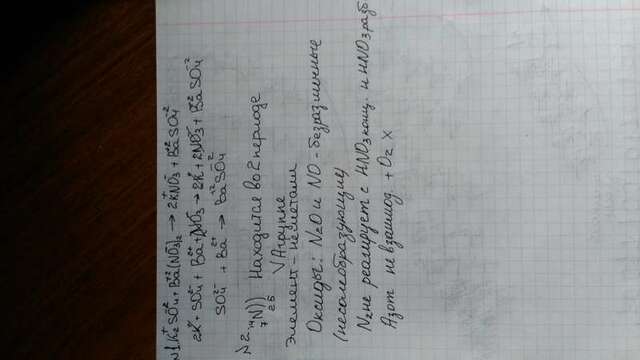 №1. K₂⁺SO₄²⁻ + Ba⁺²(NO₃⁻)₂ → 2K⁺NO₃⁻ + Ba⁺²SO₄⁻²
2K⁺ + SO₄²⁻ + Ba²⁺ + 2NO₃⁻ → 2K⁺ + 2NO₃⁻ + Ba⁺²SO₄⁻²
SO₄²⁻ + Ba²⁺ → Ba⁺²SO₄⁻²
№2. ₇¹⁴N)) Находится во 2 периоде
2 5 V А группе
Элемент - неметалл
Оксиды: N₂O и NO - безразличные
(несолеобразующие)
N₂ не реагирует с HNO₃ конц. и HNO₃ разб
Азот не взаимод. + O₂ x